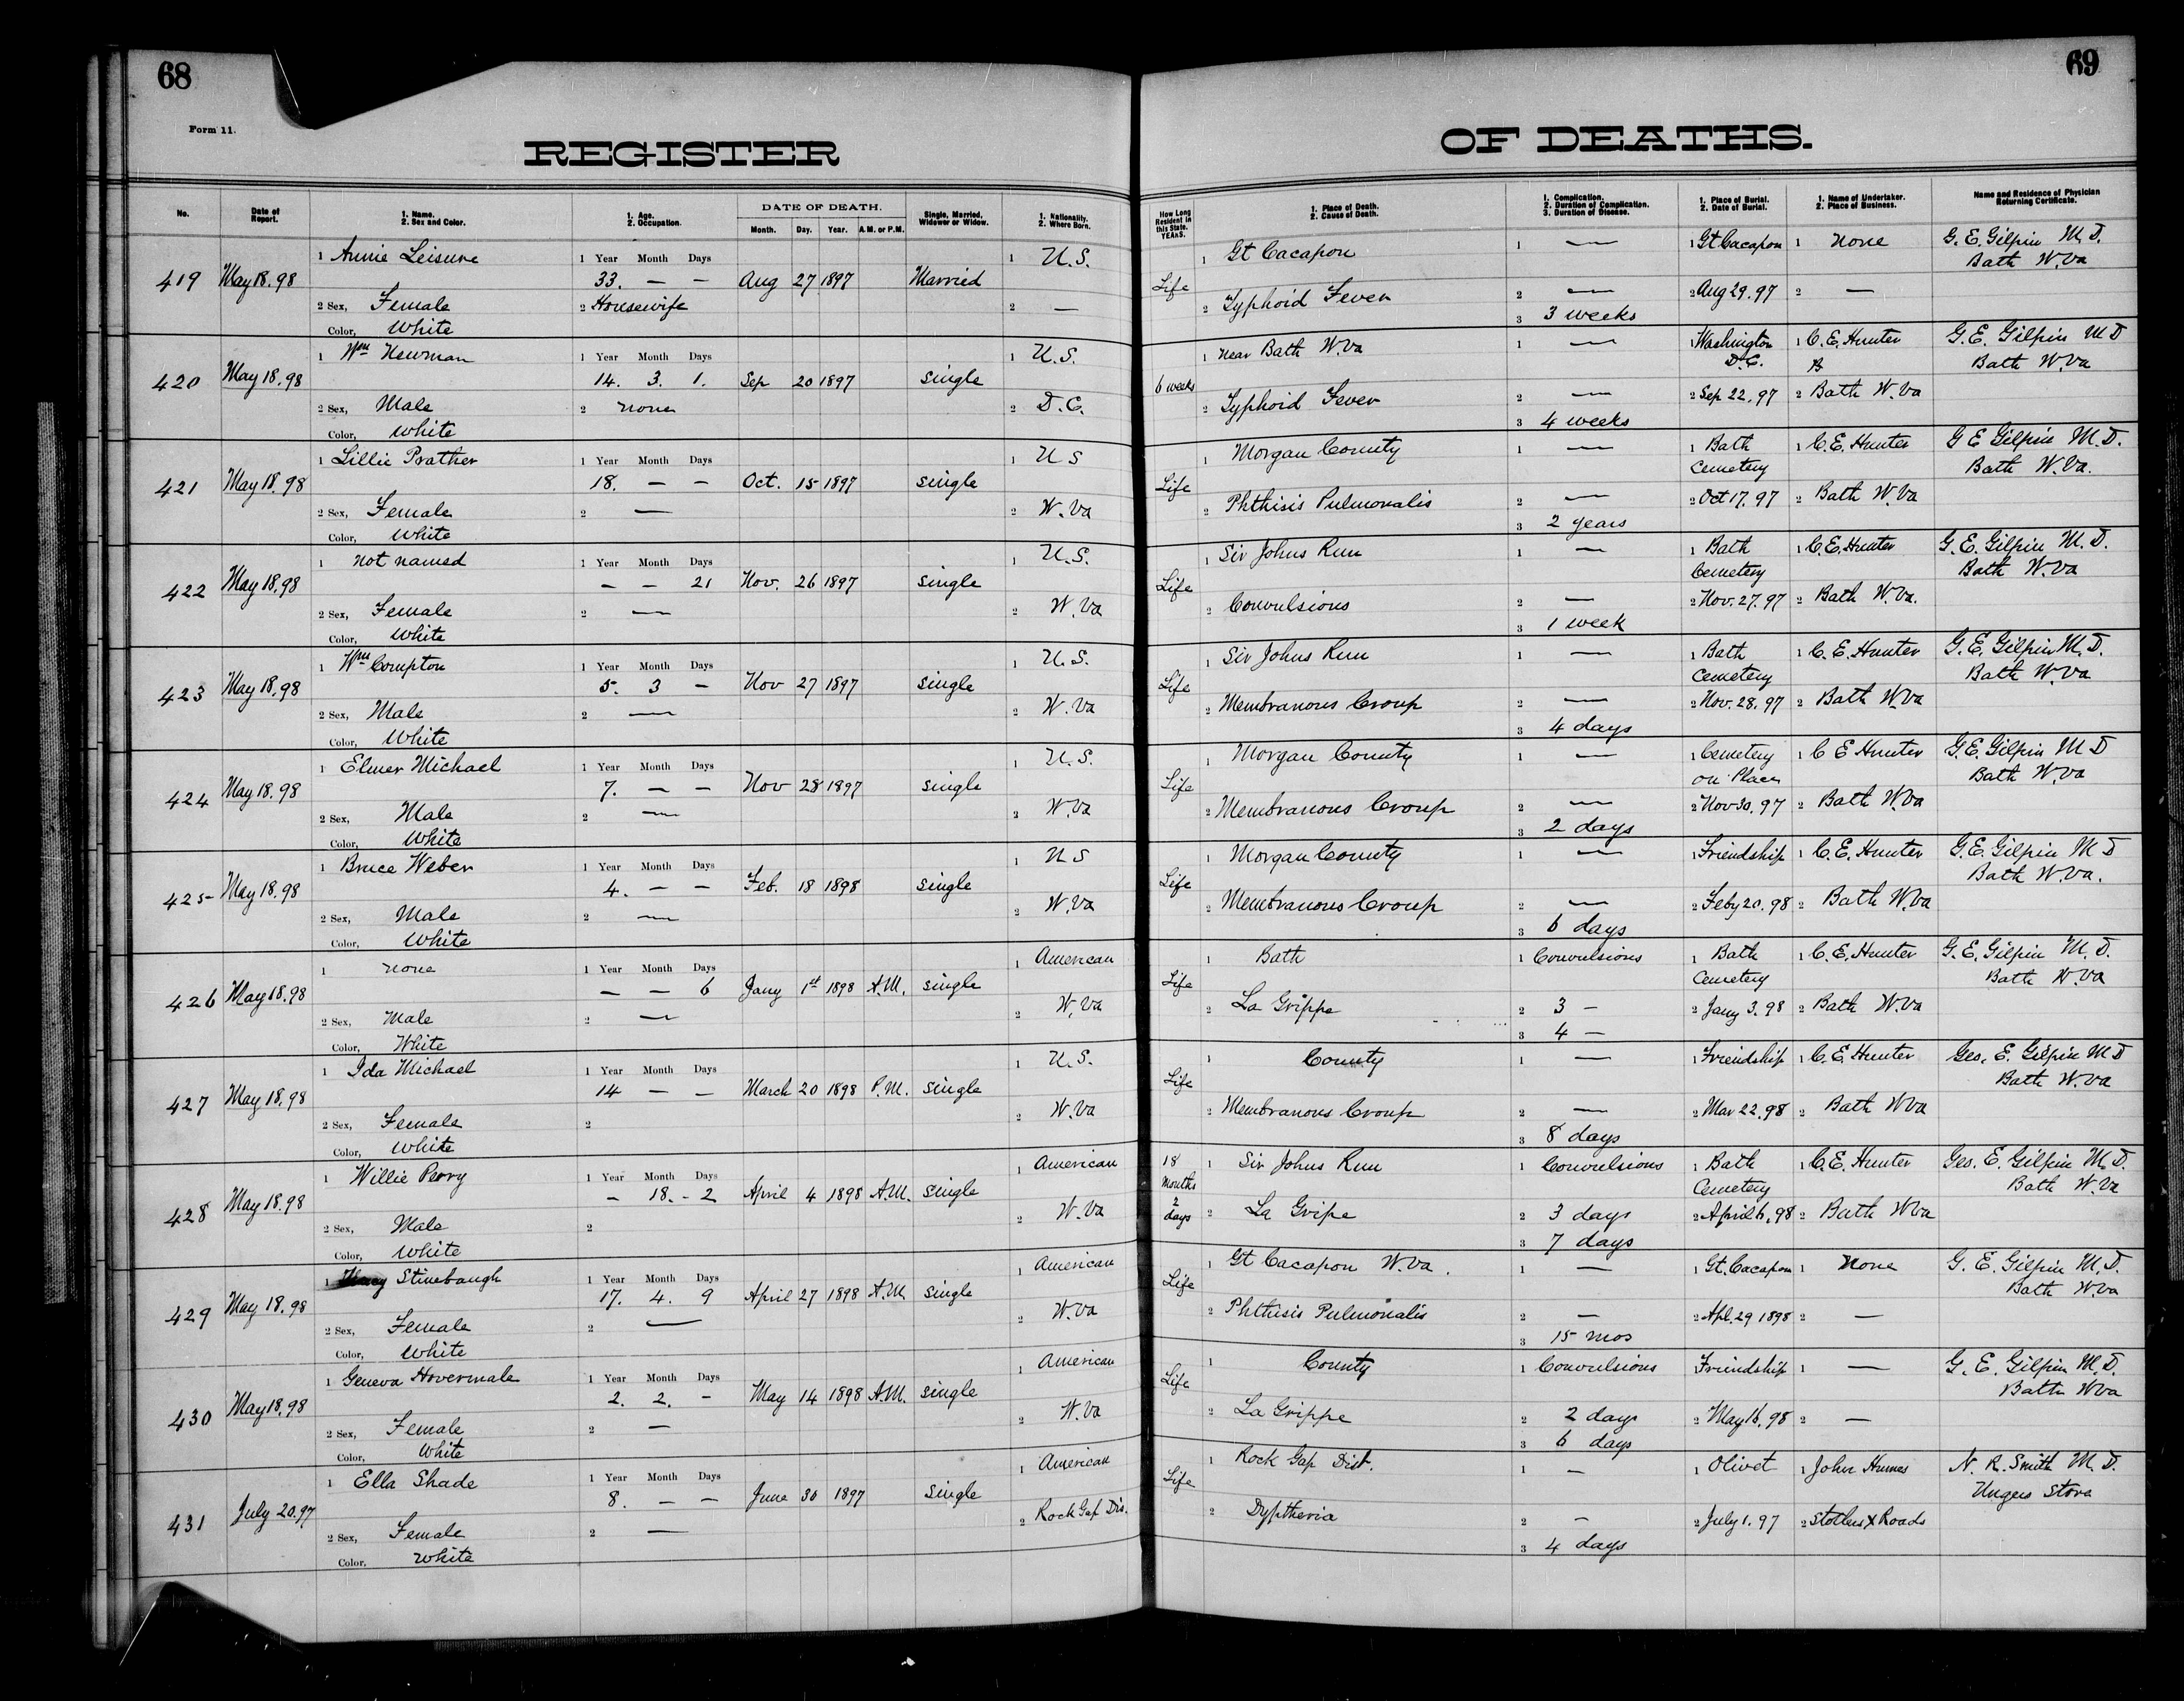 68
69
Form 11.
REGISTER OF DEATHS.
No. | Date of Report. | 1. Name. 2. Sex and Color. | 1. Age. 2. Occupation. | DATE OF DEATH. Month. Day. Year. A.M. or P.M. | Single, Married, Widower or Widow. | 1. Nationality. 2. Where Born. | How Long Resident in this State. YEARS. | 1. Place of Death. 2. Cause of Death. | 1. Complication. 2. Duration of Complication. 3. Duration of Disease. | 1. Place of Burial. 2. Date of Burial. | 1. Name of Undertaker. 2. Place of Business. | Name and Residence of Physician Returning Certificate.
1 Annie Leisure | 1 Year Month Days | 1 U.S. | 1 Gt Cacapon | 1 — | 1 Gt Cacapon | 1 None | G. E. Gilpin M.D. Bath W.Va
419 | May 18.98 | 33. — — | Aug 27 1897 | Married | Life
2 Sex, Female | 2 Housewife | 2 — | 2 Typhoid Fever | 2 — | 2 Aug 29.97 | 2 —
Color, White | 3 3 weeks
1 Wm Newman | 1 Year Month Days | 1 U.S. | 1 near Bath W.Va | 1 — | 1 Washington D.C. | 1 C.E. Hunter B | G. E. Gilpin M D Bath W.Va
420 | May 18.98 | 14. 3. 1. | Sep 20 1897 | Single | 6 weeks
2 Sex, Male | 2 none | 2 D.C. | 2 Typhoid Fever | 2 — | 2 Sep 22.97 | 2 Bath W.Va
Color, White | 3 4 weeks
1 Lillie Prather | 1 Year Month Days | 1 U S | 1 Morgan County | 1 — | 1 Bath Cemetery | 1 C.E. Hunter | G E Gilpin M.D. Bath W.Va.
421 | May 18.98 | 18. — — | Oct. 15 1897 | Single | Life
2 Sex, Female | 2 — | 2 W.Va | 2 Phthisis Pulmonalis | 2 — | 2 Oct 17.97 | 2 Bath W.Va
Color, White | 3 2 years
1 not named | 1 Year Month Days | 1 U.S. | 1 Sir Johns Run | 1 — | 1 Bath Cemetery | 1 C.E. Hunter | G.E. Gilpin M.D. Bath W.Va
422 | May 18.98 | — — 21 | Nov. 26 1897 | Single | Life
2 Sex, Female | 2 — | 2 W.Va | 2 Convulsions | 2 — | 2 Nov. 27.97 | 2 Bath W.Va.
Color, White | 3 1 week
1 Wm Compton | 1 Year Month Days | 1 U.S. | 1 Sir Johns Run | 1 — | 1 Bath Cemetery | 1 C.E. Hunter | G.E. Gilpin M.D. Bath W.Va
423 | May 18.98 | 5. 3 — | Nov 27 1897 | Single | Life
2 Sex, Male | 2 — | 2 W.Va | 2 Membranous Croup | 2 — | 2 Nov. 28.97 | 2 Bath W.Va
Color, White | 3 4 days
1 Elmer Michael | 1 Year Month Days | 1 U.S. | 1 Morgan County | 1 — | 1 Cemetery on Place | 1 C E Hunter | G.E. Gilpin M D Bath W.Va
424 | May 18.98 | 7. — — | Nov 28 1897 | Single | Life
2 Sex, Male | 2 — | 2 W.Va | 2 Membranous Croup | 2 — | 2 Nov 30.97 | 2 Bath W.Va
Color, White | 3 2 days
1 Bruce Weber | 1 Year Month Days | 1 U S | 1 Morgan County | 1 — | 1 Friendship | 1 C.E. Hunter | G.E. Gilpin M D Bath W.Va.
425 | May 18.98 | 4. — — | Feb. 18 1898 | Single | Life
2 Sex, Male | 2 — | 2 W.Va | 2 Membranous Croup | 2 — | 2 Feby 20.98 | 2 Bath W.Va
Color, White | 3 6 days
1 none | 1 Year Month Days | 1 American | 1 Bath | 1 Convulsions | 1 Bath Cemetery | 1 C.E. Hunter | G.E. Gilpin M.D. Bath W.Va
426 | May 18.98 | — — 6 | Jany 1st 1898 A.M. | Single | Life
2 Sex, Male | 2 — | 2 W.Va | 2 La Grippe | 2 3 — | 2 Jany 3.98 | 2 Bath W.Va
Color, White | 3 4 —
1 Ida Michael | 1 Year Month Days | 1 U.S. | 1 County | 1 — | 1 Friendship | 1 C.E. Hunter | Geo. E. Gilpin M D Bath W.Va
427 | May 18.98 | 14 — — | March 20 1898 P.M. | Single | Life
2 Sex, Female | 2 | 2 W.Va | 2 Membranous Croup | 2 — | 2 Mar 22.98 | 2 Bath W Va
Color, White | 3 8 days
1 Willie Perry | 1 Year Month Days | 1 American | 1 Sir Johns Run | 1 Convulsions | 1 Bath Cemetery | 1 C.E. Hunter | Geo. E. Gilpin M.D. Bath W.Va
428 | May 18.98 | — 18. - 2 | April 4 1898 A.M. | Single | 18 months 2 days
2 Sex, Male | 2 | 2 W.Va | 2 La Gripe | 2 3 days | 2 April 6.98 | 2 Bath W Va
Color, White | 3 7 days
1 Stinebaugh | 1 Year Month Days | 1 American | 1 Gt Cacapon W.Va. | 1 — | 1 Gt. Cacapon | 1 None | G. E. Gilpin M.D. Bath W.Va
429 | May 18.98 | 17. 4. 9 | April 27 1898 A.M | Single | Life
2 Sex, Female | 2 — | 2 W.Va | 2 Phthisis Pulmonalis | 2 — | 2 Apl. 29 1898 | 2 —
Color, White | 3 15 mos
1 Geneva Hovermale | 1 Year Month Days | 1 American | 1 County | 1 Convulsions | Friendship | 1 — | G. E. Gilpin M.D. Bath W Va
430 | May 18.98 | 2. 2. - | May 14 1898 A.M. | Single | Life
2 Sex, Female | 2 — | 2 W.Va | 2 La Grippe | 2 2 days | 2 May 16.98 | 2 —
Color, White | 3 6 days
1 Ella Shade | 1 Year Month Days | 1 American | 1 Rock Gap Dist. | 1 — | 1 Olivet | 1 John Humes | N. R. Smith M.D. Ungers Store
431 | July 20.97 | 8. — — | June 30 1897 | Single | Life
2 Sex, Female | 2 — | 2 Rock Gap Dis. | 2 Dyptheria | 2 - | 2 July 1.97 | 2 Stotlers X Roads
Color. White | 3 4 days